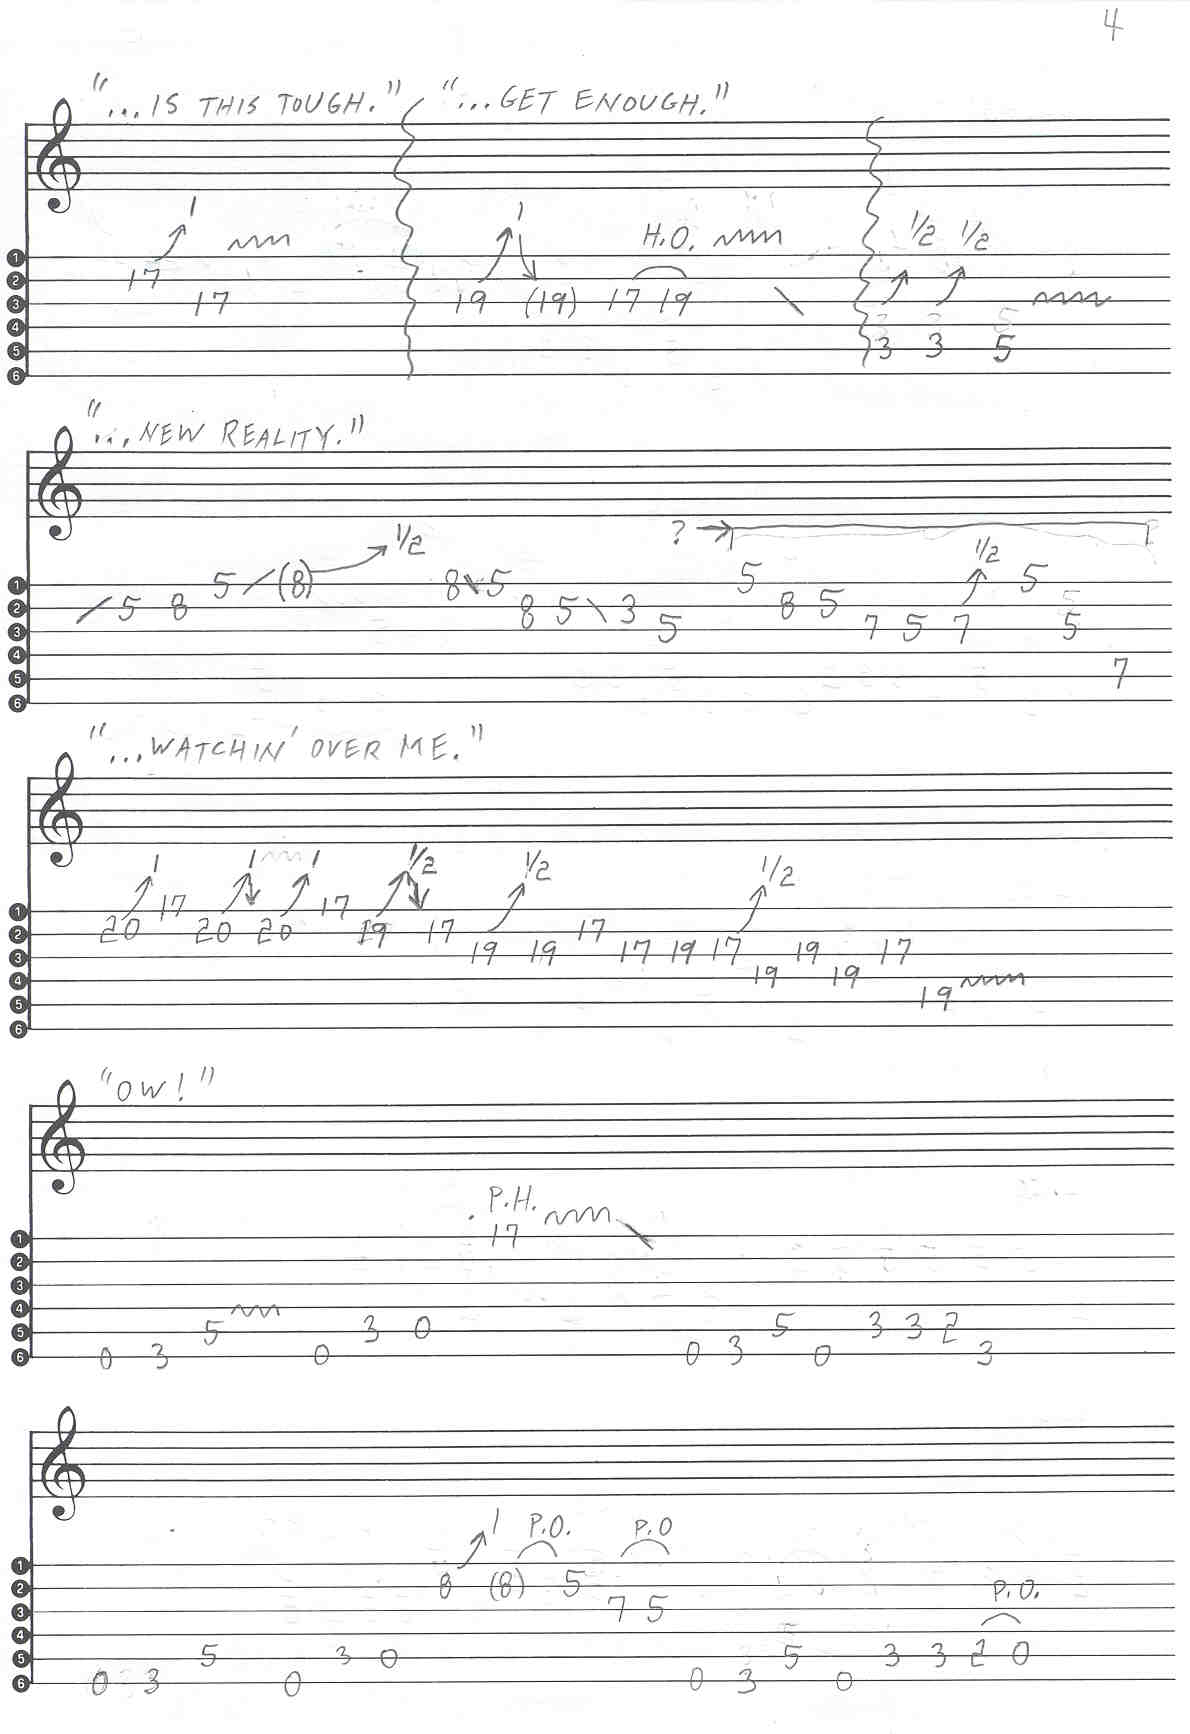 4
"...IS THIS TOUGH." "...GET ENOUGH."
1 1 H.O. 1/2 1/2
17 17 19 (19) 17 19 3 3 5
"...NEW REALITY."
1/2 ? 1/2
5 8 5 (8) 8 5 8 5 3 5 5 8 5 7 5 7 5 5 7
"...WATCHIN' OVER ME."
1 1 1 1/2 1/2 1/2
20 17 20 20 17 19 17 19 19 17 17 19 17 19 19 19 17 19
"OW!"
P.H.
17
0 3 5 0 3 0 0 3 5 0 3 3 2 3
1 P.O. P.O
8 (8) 5 7 5
P.O.
0 3 5 0 3 0 0 3 5 0 3 3 2 0
1
2
3
4
5
6
1
2
3
4
5
6
1
2
3
4
5
6
1
2
3
4
5
6
1
2
3
4
5
6